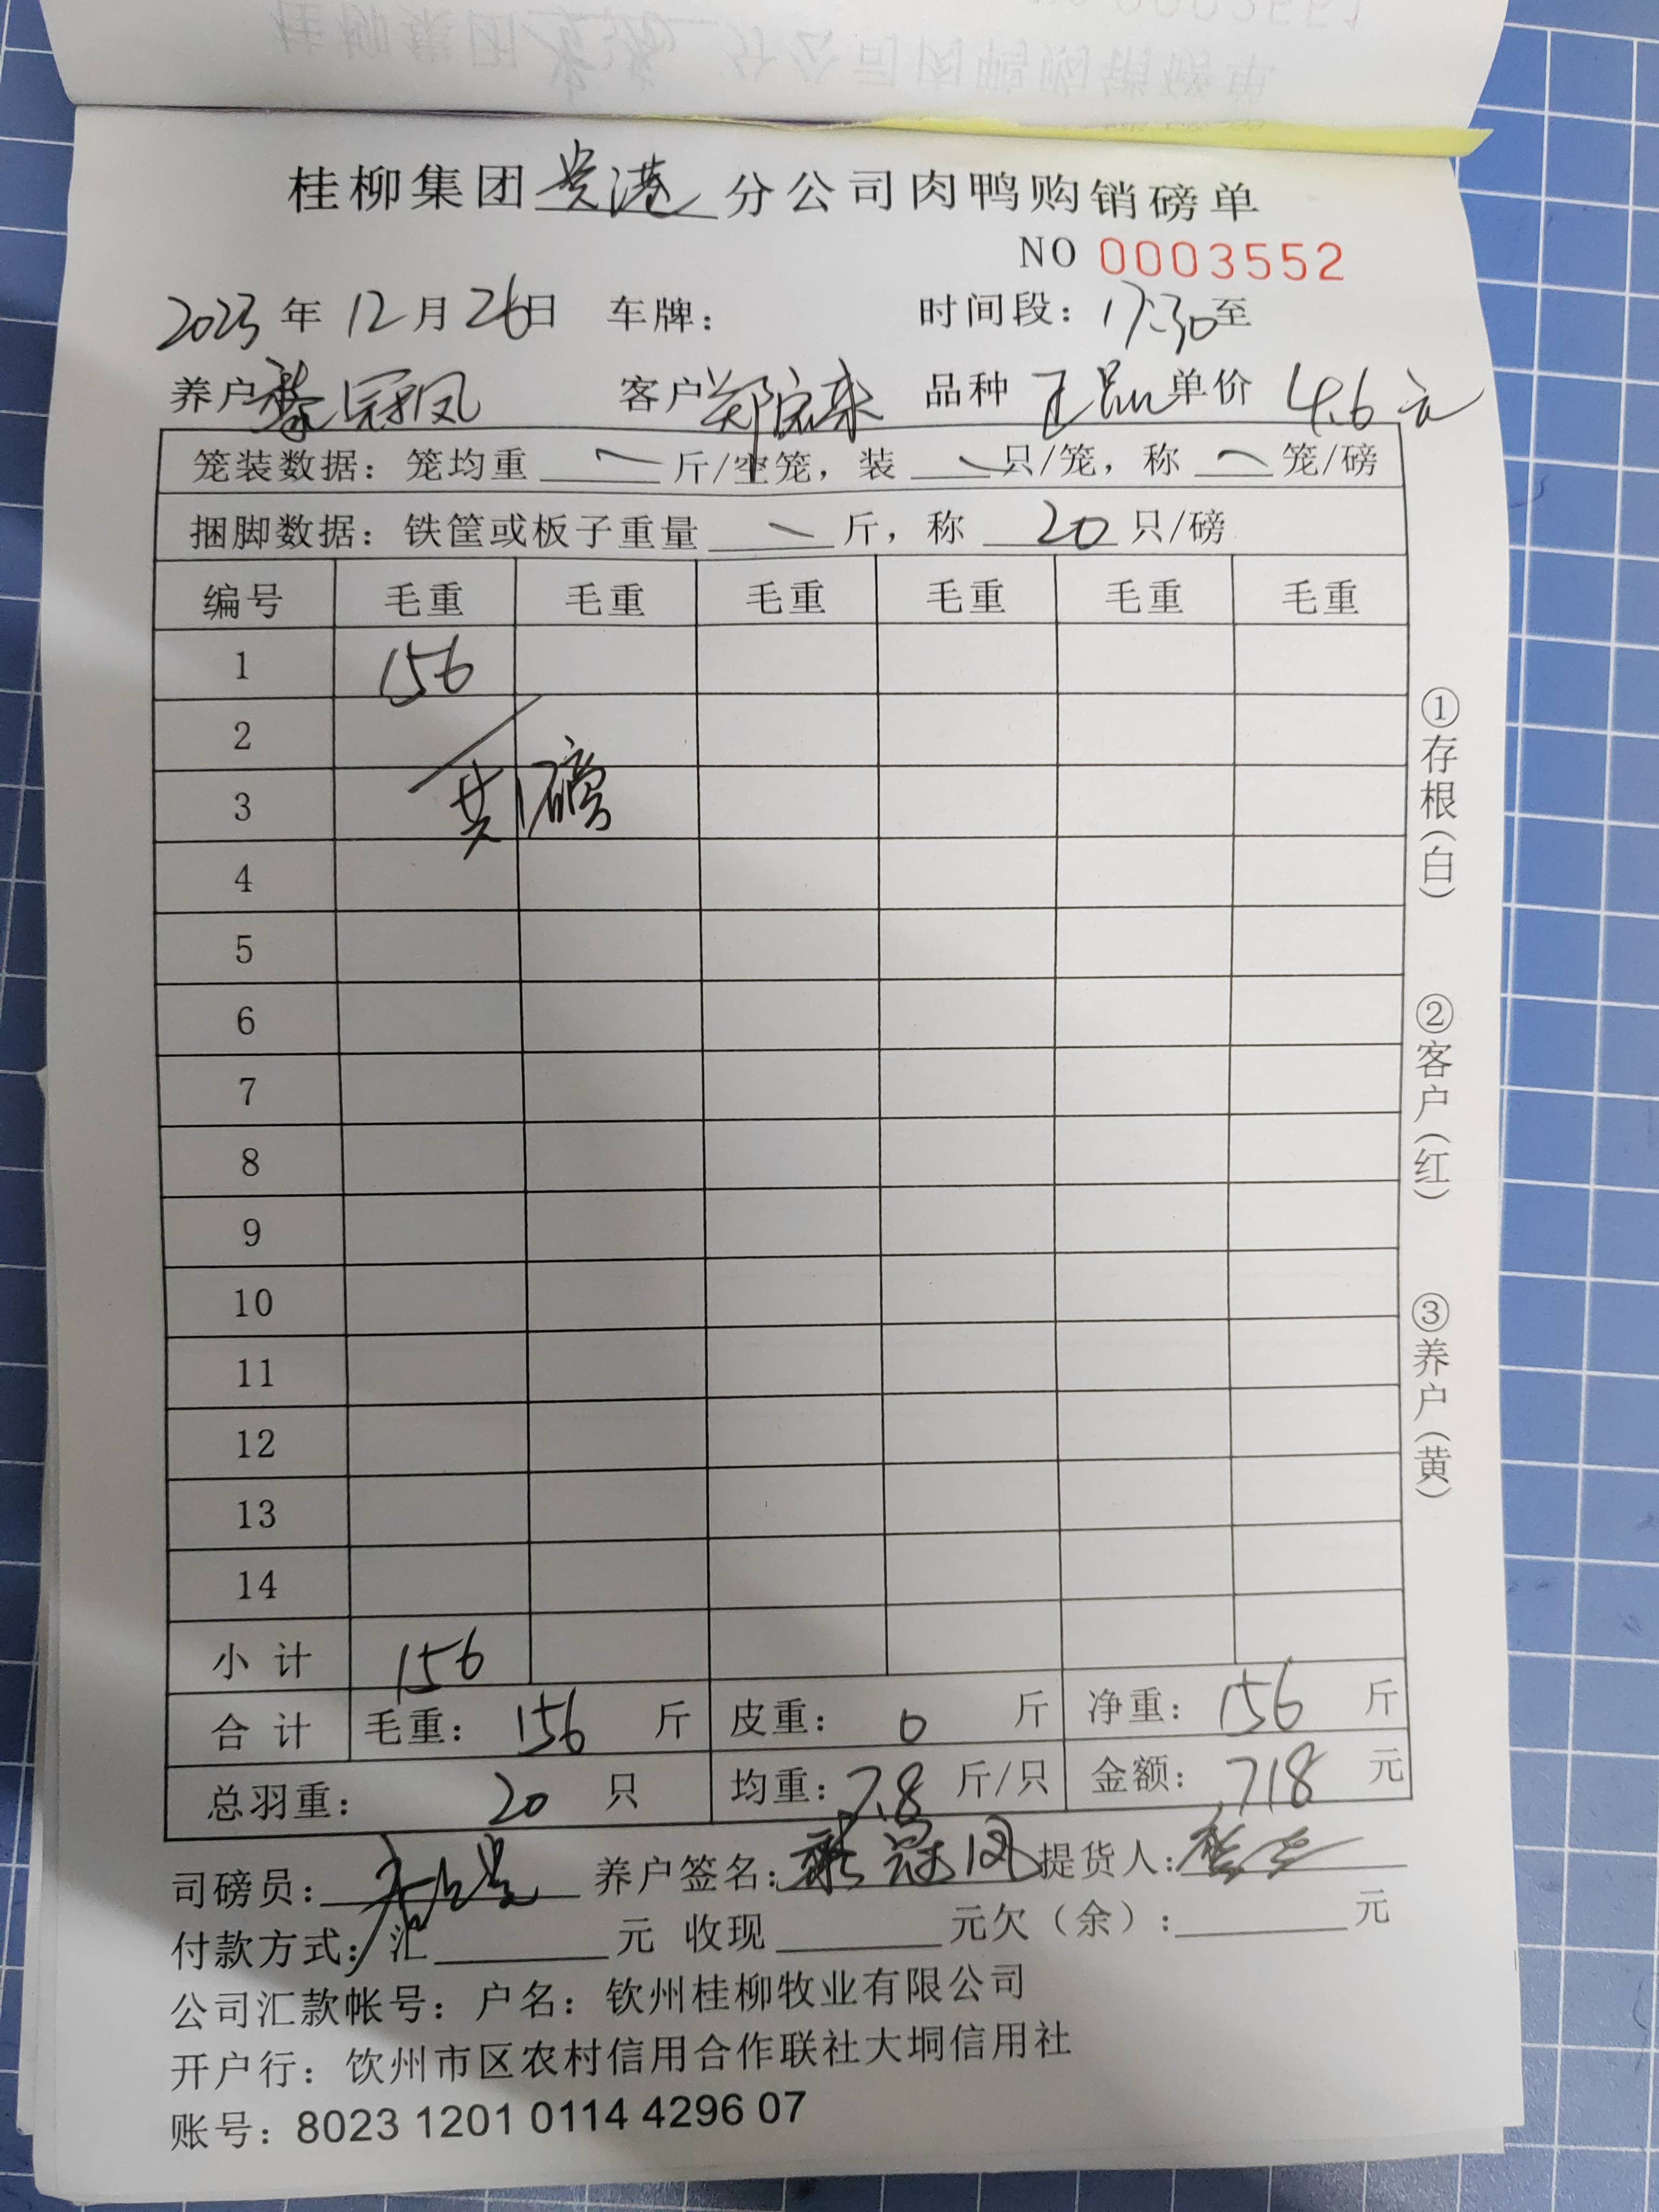 桂柳集团贵港分公司肉鸭购销磅单
NO 0003552
2023年12月26日 车牌： 时间段：17:30至
养户 冠凤 客户 郑 品种 正品 单价 4.6元
笼装数据：笼均重 — 斤/空笼，装 — 只/笼，称 — 笼/磅
捆脚数据：铁筐或板子重量 — 斤，称 20 只/磅
编号 毛重 毛重 毛重 毛重 毛重 毛重
1 156
2
3 共1磅
4
5
6
7
8
9
10
11
12
13
14
小计 156
合计 毛重：156 斤 皮重：0 斤 净重：156 斤
总羽重：20 只 均重：7.8 斤/只 金额：718 元
司磅员： 养户签名： 冠凤 提货人：
付款方式：汇 元 收现 元欠（余）： 元
公司汇款帐号：户名：钦州桂柳牧业有限公司
开户行：饮州市区农村信用合作联社大垌信用社
账号：8023 1201 0114 4296 07
①存根（白）
②客户（红）
③养户（黄）